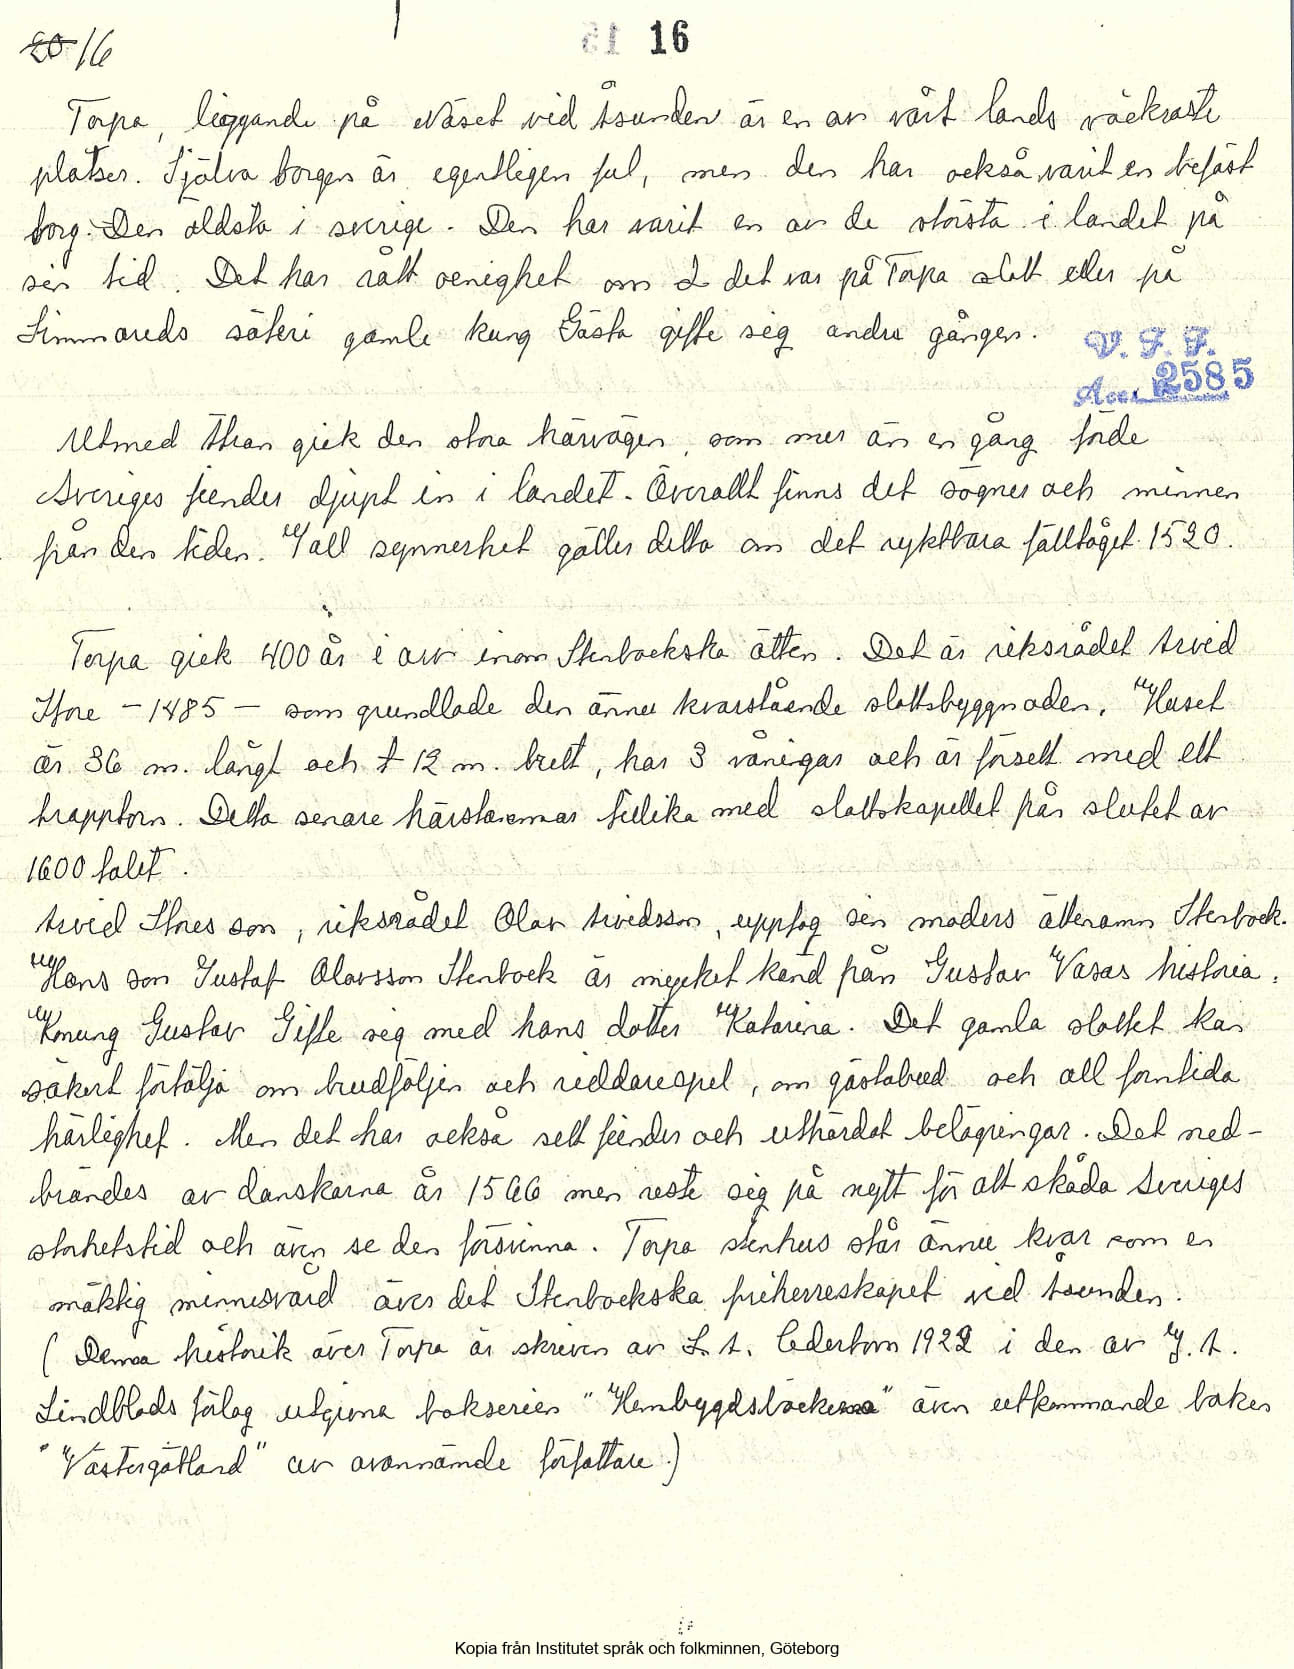 20 16
16
Torpa, liggande på Näset vid Åsunden är en av vårt lands väckraste
platser. Själva borgen är egentligen ful, men den har också varit en befäst
borg. Den äldsta i sverige. Den har varit en av de största i landet på
sin tid. Det har rått oenighet om det var på Torpa slott eller på
Limmareds säteri gamle kung Gösta gifte seg andra gången.
V. F. F.
Acc. 2585
Utmed Ätran gick den stora härvägen, som mer än en gång förde
Sveriges fiender djupt in i landet. Överallt finns det sägner och minnen
från den tiden. I all synnerhet gäller detta om det ryktbara fälltåget 1520.
Torpa gick 400 år i arv inom Stenbockska ätten. Det är riksrådet Arvid
- 1485 - som grundlade den ännu kvarstående slottsbyggnaden. Huset
är 36 m. långt och 12 m. brett, har 3 våningar och är försett med ett
trapptorn. Detta senare härstammar tillika med slottskapellet från slutet av
1600 talet.
Arvid son, riksrådet Olav Arvidsson, upptog sin moders ättenamn Stenbock.
Hans son Gustaf Olavsson Stenbock är mycket känd från Gustav Vasas historia.
Konung Gustav Gifte seg med hans dotter Katarina. Det gamla slottet kan
säkert förtälja om brudföljen och riddarespel, om gästabud och all forntida
härlighet. Men det har också sett fiender och uthärdat belägringar. Det ned-
brändes av danskarna år 1566 men reste sig på nytt för att skåda Sveriges
storhetstid och även se den försvinna. Torpa stenhus står ännu kvar som en
mäktig minnesvård över det Stenbockska friherreskapet vid Åsunden.
(Denna historik över Torpa är skriven av L. A. Cederbom 1922 i den av J. A.
Lindblads förlag utgivna bokserien "Hembygdsböckerna" även utkommande boken
"Västergötland" av ovannämde författare.)
Kopia från Institutet språk och folkminnen, Göteborg